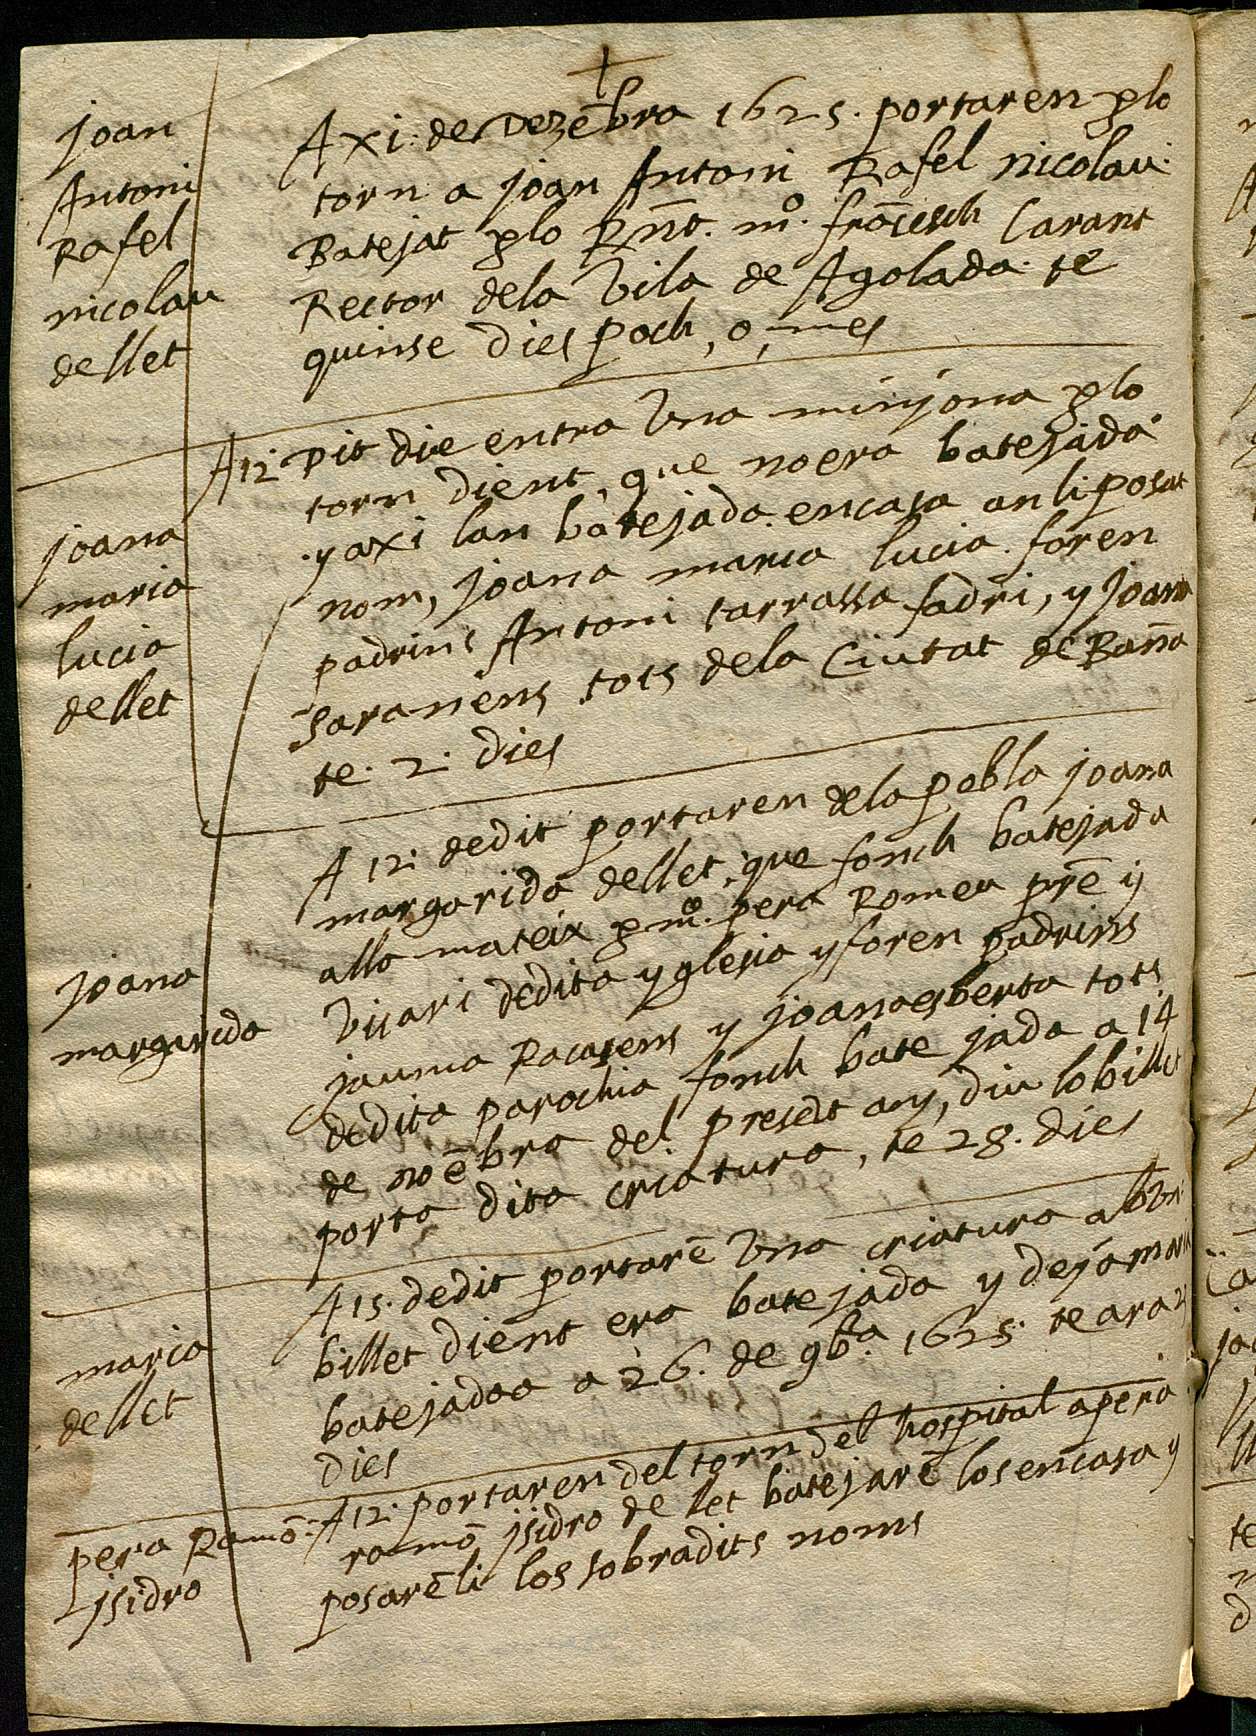 Joan
Antoni
Rafel
nicolau
dellet
A xi. de Dezẽbra 1625. portaren plo
torn a joan Antoni Rafel nicolau.
Batejat plo Rñt. mº. frãcesch Carant
Rector dela Vila de Agolada. te
quinse dies poch, o, mes
joana
maria
lucia
dellet
A 12. Dit die entra Vna minyona plo
torn dient, que noera batejada
. y axi lan batejada encasa anli posat
nom, joana maria lucia. foren
padrins Antoni tarrassa fadrī, y joana
saraniens tots dela Ciutat de Barña
te. 2. dies
joana
margarida
A 12. dedit portaren dela pobla joana
margarida dellet, que fonch batejada
alla mateix p mº. pera Romeu prẽ y
Vicari dedita yglesia y foren padrins
jauma Racasens y joana esberta tots
dedita parochia fonch bate jada a 14
de noẽbra del present any, diu lo billet
porta dita criatura, te 28. dies
maria
dellet
A 15. dedit portarẽ Vna criatura ab Vn
billet dient era batejada y deya maria
batejadaa a 26. de 9bra. 1625. te ara 2
dies
pera Ramõ.
jsidro
A 12. portaren del torn del hospital a pera
ramõ jsidro de llet batejarẽ los encasa y
posarẽ li los sobradits noms